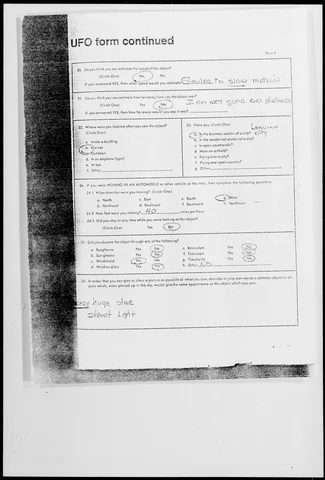 UFO form continued
20. Do you think you can estimate the speed of the object?
(Circle One) Yes No
If you answered YES, then what speed would you estimate? Similar to slow motion
21. Do you think you can estimate how far away from you the object was?
(Circle One) Yes No I am not good on distance
If you answered YES, then how far away would you say it was?
22. Where were you located when you saw the object?
(Circle One):
a. Inside a building
b. In a car
c. Outdoors
d. In an airplane (type)
e. At sea
f. Other
23. Were you (Circle One) Leaving City
a. In the business section of a city?
b. In the residential section of a city?
c. In open countryside?
d. Near an airfield?
e. Flying over a city?
f. Flying over open country?
g. Other
24. If you were MOVING IN AN AUTOMOBILE or other vehicle at the time, then complete the following questions:
24.1 What direction were you moving? (Circle One)
a. North c. East e. South g. West
b. Northeast d. Southeast f. Southwest h. Northwest
24.2 How fast were you moving? 40 miles per hour.
24.3 Did you stop at any time while you were looking at the object?
(Circle One) Yes No
25. Did you observe the object through any of the following?
a. Eyeglasses Yes No e. Binoculars Yes No
b. Sun glasses Yes No f. Telescope Yes No
c. Windshield Yes No g. Theodolite Yes No
d. Window glass Yes No h. Other
26. In order that you can give as clear a picture as possible of what you saw, describe in your own words a common object or objects which, when placed up in the sky, would give the same appearance as the object which you saw.
huge star
street light